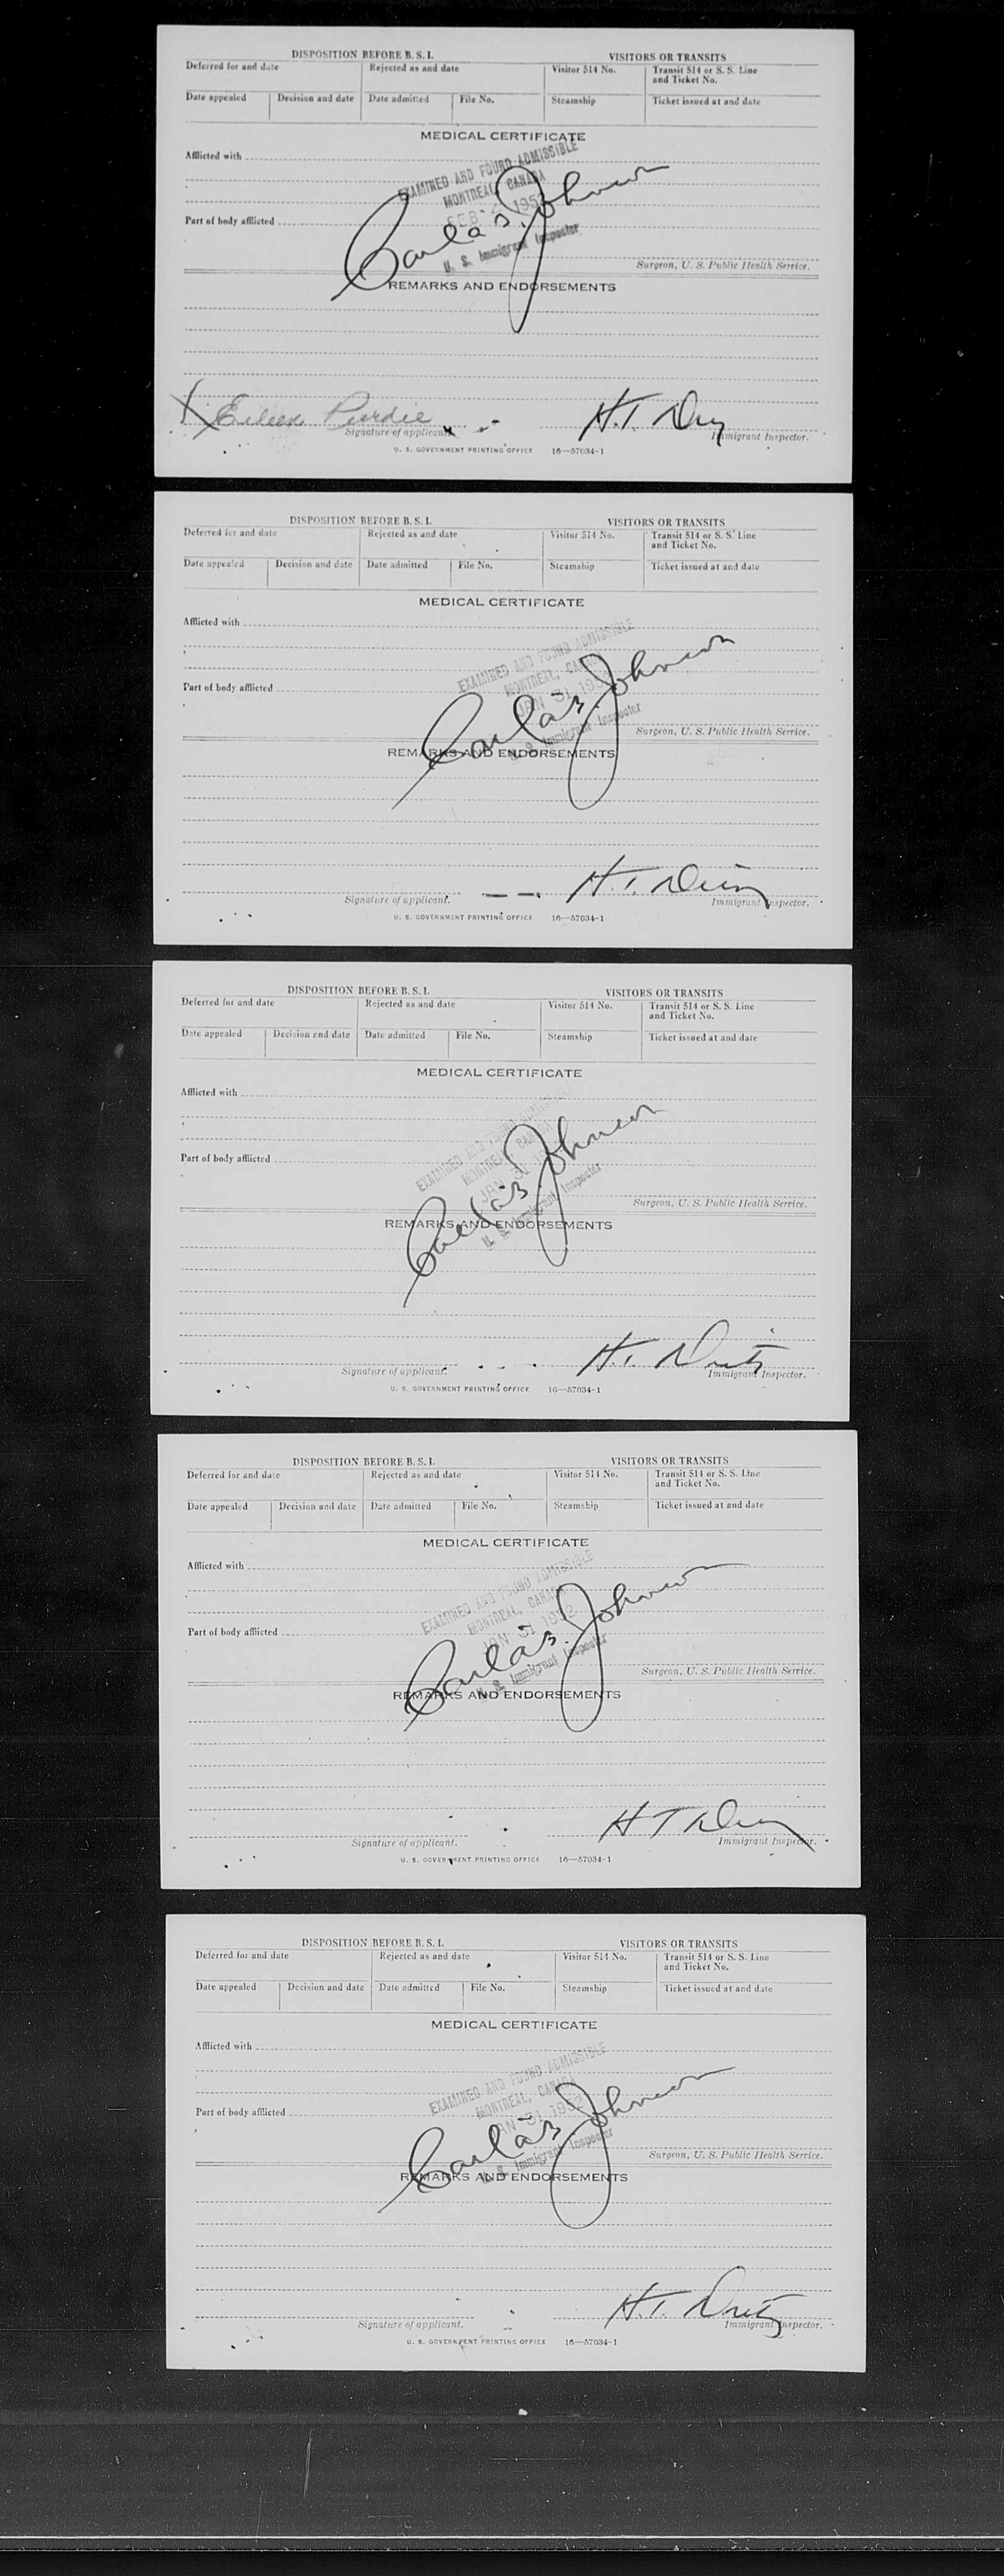 DISPOSITION BEFORE B. S. I. VISITORS OR TRANSITS
Deferred for and date Rejected as and date Visitor 514 No. Transit 514 or S. S. Line and Ticket No.
Date appealed Decision and date Date admitted File No. Steamship Ticket issued at and date
MEDICAL CERTIFICATE
Afflicted with
EXAMINED AND FOUND ADMISSIBLE
MONTREAL, CANADA
FEB 195
Part of body afflicted
Carl a s. Johnson
U. S. Immigrant Inspector
Surgeon, U. S. Public Health Service.
REMARKS AND ENDORSEMENTS
X Eileen Purdie H. T.
Signature of applicant. Immigrant Inspector.
U. S. GOVERNMENT PRINTING OFFICE 16—57034-1
DISPOSITION BEFORE B. S. I. VISITORS OR TRANSITS
Deferred for and date Rejected as and date Visitor 514 No. Transit 514 or S. S. Line and Ticket No.
Date appealed Decision and date Date admitted File No. Steamship Ticket issued at and date
MEDICAL CERTIFICATE
Afflicted with
EXAMINED AND FOUND ADMISSIBLE
MONTREAL, CANADA
JAN 31 195
Part of body afflicted
Johnson
U. S. Immigrant Inspector
Surgeon, U. S. Public Health Service.
REMARKS AND ENDORSEMENTS
H. T.
Signature of applicant. Immigrant Inspector.
U. S. GOVERNMENT PRINTING OFFICE 16—57034-1
DISPOSITION BEFORE B. S. I. VISITORS OR TRANSITS
Deferred for and date Rejected as and date Visitor 514 No. Transit 514 or S. S. Line and Ticket No.
Date appealed Decision and date Date admitted File No. Steamship Ticket issued at and date
MEDICAL CERTIFICATE
Afflicted with
EXAMINED AND FOUND ADMISSIBLE
MONTREAL, CANADA
JAN 31
Part of body afflicted
Johnson
U. S. Immigrant Inspector
Surgeon, U. S. Public Health Service.
REMARKS AND ENDORSEMENTS
H. T.
Signature of applicant. Immigrant Inspector.
U. S. GOVERNMENT PRINTING OFFICE 16—57034-1
DISPOSITION BEFORE B. S. I. VISITORS OR TRANSITS
Deferred for and date Rejected as and date Visitor 514 No. Transit 514 or S. S. Line and Ticket No.
Date appealed Decision and date Date admitted File No. Steamship Ticket issued at and date
MEDICAL CERTIFICATE
Afflicted with
EXAMINED AND FOUND ADMISSIBLE
MONTREAL, CANADA
JAN 31 1952
Part of body afflicted
Johnson
U. S. Immigrant Inspector
Surgeon, U. S. Public Health Service.
REMARKS AND ENDORSEMENTS
H T
Signature of applicant. Immigrant Inspector.
U. S. GOVERNMENT PRINTING OFFICE 16—57034-1
DISPOSITION BEFORE B. S. I. VISITORS OR TRANSITS
Deferred for and date Rejected as and date Visitor 514 No. Transit 514 or S. S. Line and Ticket No.
Date appealed Decision and date Date admitted File No. Steamship Ticket issued at and date
MEDICAL CERTIFICATE
Afflicted with
EXAMINED AND FOUND ADMISSIBLE
MONTREAL, CANADA
JAN 31 1952
Part of body afflicted
Johnson
U. S. Immigrant Inspector
Surgeon, U. S. Public Health Service.
REMARKS AND ENDORSEMENTS
H. T.
Signature of applicant. Immigrant Inspector.
U. S. GOVERNMENT PRINTING OFFICE 16—57034-1